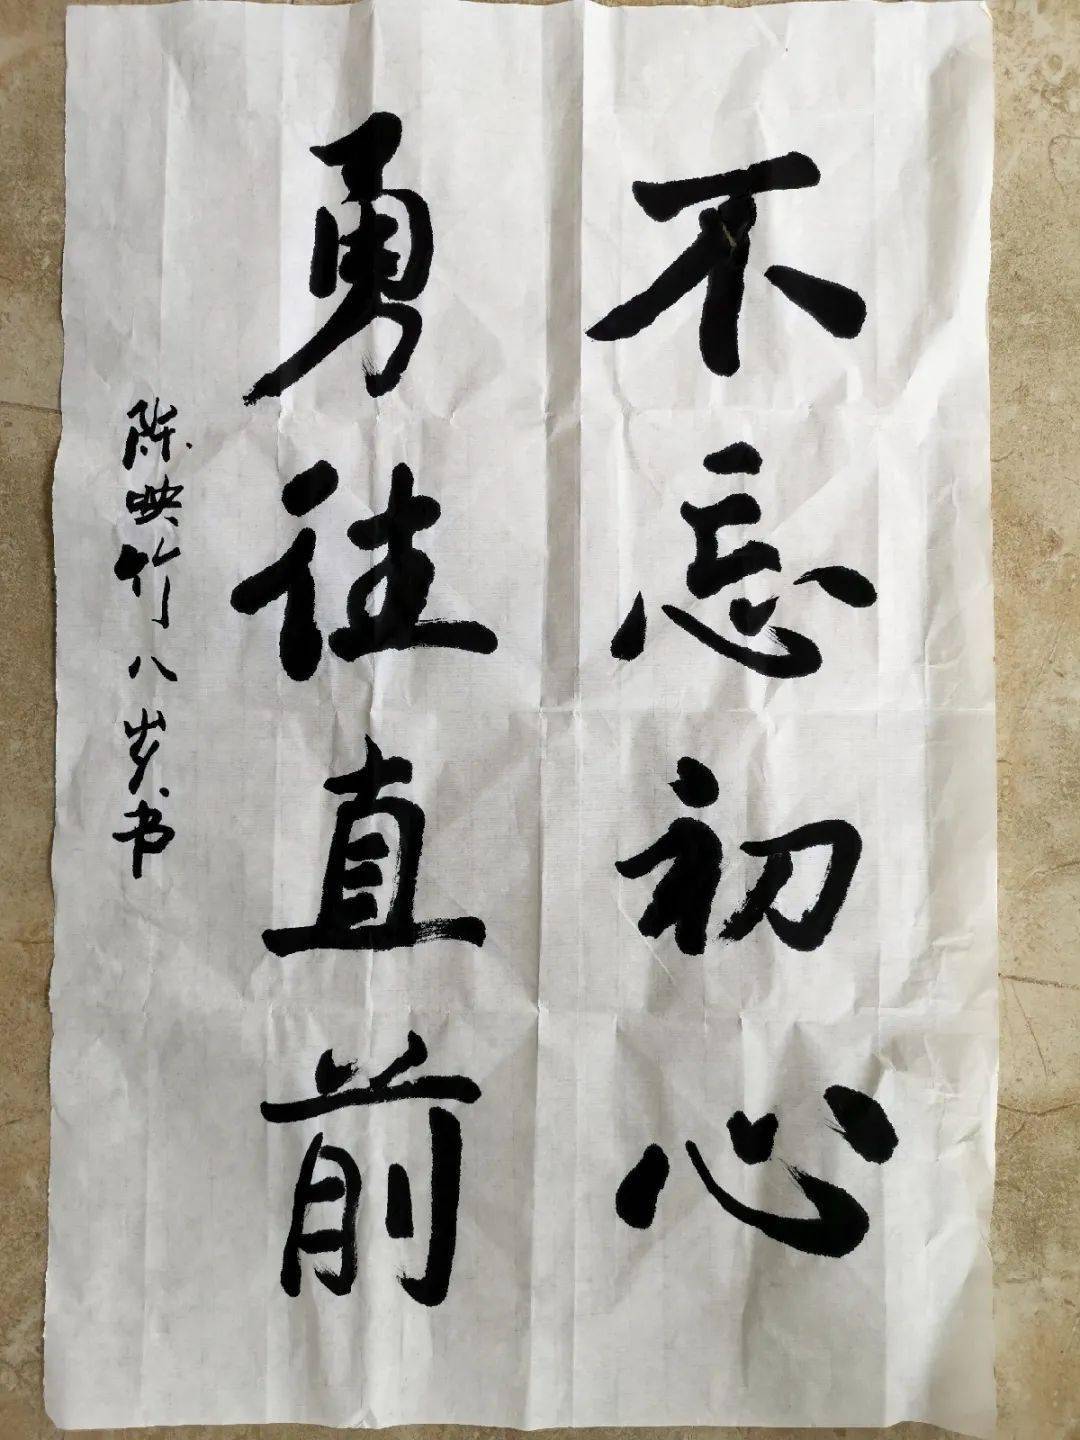 不忘初心
勇往直前
陈映竹八岁书